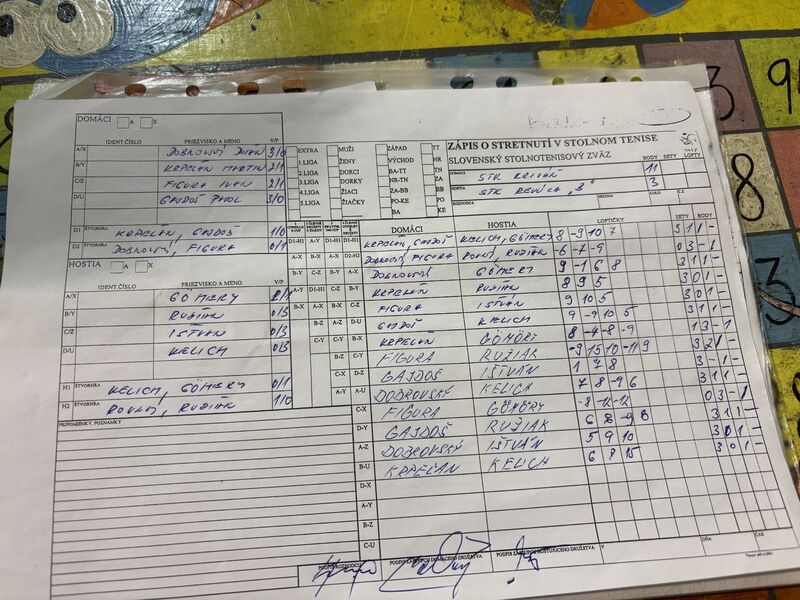 DOMÁCI A X
IDENT.ČÍSLO PRIEZVISKO A MENO V/P
A/X DOBROVSKÝ 3/0
B/Y KRPELÁN MARTIN 2/1
C/Z FIGURA IVAN 2/1
D/U GAJDOŠ 3/0
D1 ŠTVORHRA KRPELÁN, GAJDOŠ 1/0
D2 ŠTVORHRA DOBROVSKÝ, FIGURA 0/1
HOSTIA A X
IDENT.ČÍSLO PRIEZVISKO A MENO V/P
A/X GÖMERY
B/Y RUŽIAK 0/3
C/Z IŠTVÁN 0/3
D/U KELICH 0/3
H1 ŠTVORHRA KELICH, GÖMERY 0/1
H2 ŠTVORHRA RUŽIAK 1/0
PRIPOMIENKY, POZNÁMKY
EXTRA MUŽI ZÁPAD TT
1.LIGA ŽENY VÝCHOD NR
2.LIGA DORCI BA-TT TN
3.LIGA DORKY NR-TN ZA
4.LIGA ŽIACI ZA-BB BB
5.LIGA ŽIAČKY PO-KE PO
BA KE
ZÁPIS O STRETNUTÍ V STOLNOM TENISE
SLOVENSKÝ STOLNOTENISOVÝ ZVÄZ
BODY SETY LOPTY
DOMÁCI STK KRIVÁŇ 11
HOSTIA STK REVÚCA "B" 3
ROZHODCA
DOMÁCI HOSTIA LOPTIČKY SETY BODY
KRPELÁN, GAJDOŠ KELICH, GÖMERY 8 -9 10 7 3 1 1 -
DOBROVSKÝ, FIGURA RUŽIAK -6 -7 -9 0 3 - 1
DOBROVSKÝ GÖMERY 9 -1 6 8 3 1 1 -
KRPELÁN RUŽIAK 8 9 5 3 0 1 -
FIGURA IŠTVÁN 9 10 5 3 0 1 -
GAJDOŠ KELICH 9 -9 10 5 3 1 1 -
KRPELÁN GÖMÖRY 8 -4 -8 -9 1 3 - 1
FIGURA RUŽIAK -9 15 10 -11 9 3 2 1 -
GAJDOŠ IŠTVÁN 1 7 8
DOBROVSKÝ KELICH 7 8 -9 6 3 1 1 -
FIGURA GÖMÖRY -8 -12 -12 0 3 - 1
GAJDOŠ RUŽIAK 6 8 -9 8 3 1 1 -
DOBROVSKÝ IŠTVÁN 5 9 10 3 0 1 -
KRPELÁN KELICH 6 8 15 3 0 1 -
C-X
D-Y
A-Z
B-U
D-X
A-Y
B-Z
C-U
PODPIS ROZHODCU
PODPIS ZÁSTUPCU DOMÁCEHO DRUŽSTVA
PODPIS ZÁSTUPCU HOSŤUJÚCEHO DRUŽSTVA
V DŇA ČAS